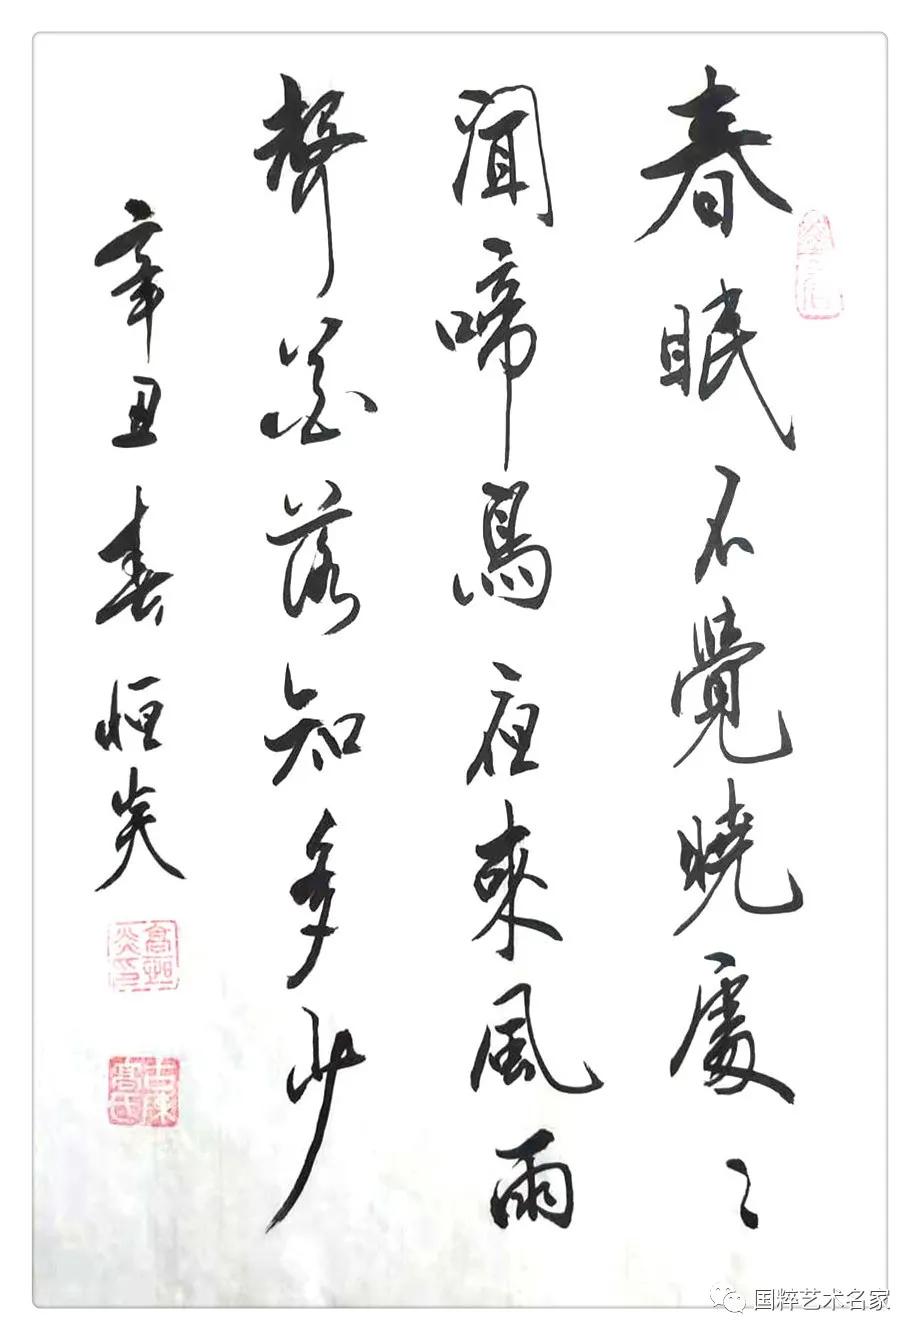 春眠不覺曉處〻
聞啼鳥夜來風雨
聲花落知多少
辛丑春恒炎
高恒炎印
國粹艺术名家